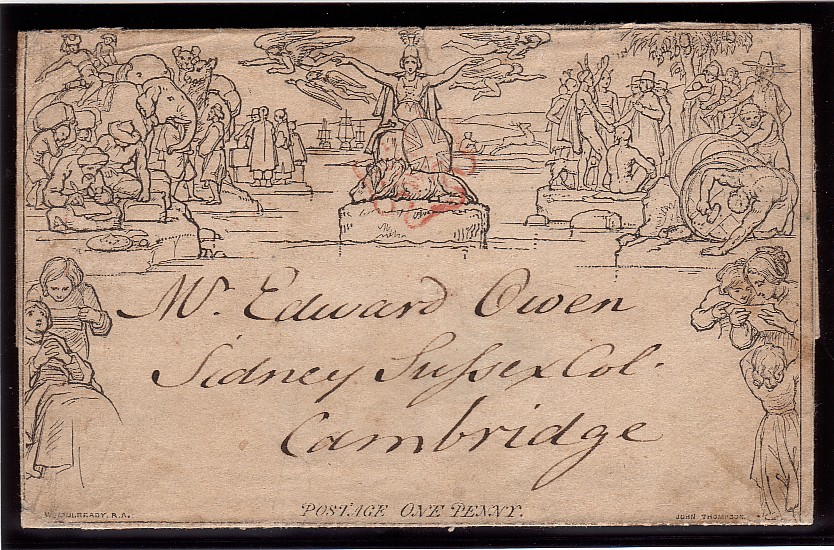 Mr. Edward Owen
Sidney Sussex Col.
Cambridge
W. MULREADY, R.A.
POSTAGE ONE PENNY.
JOHN THOMPSON.